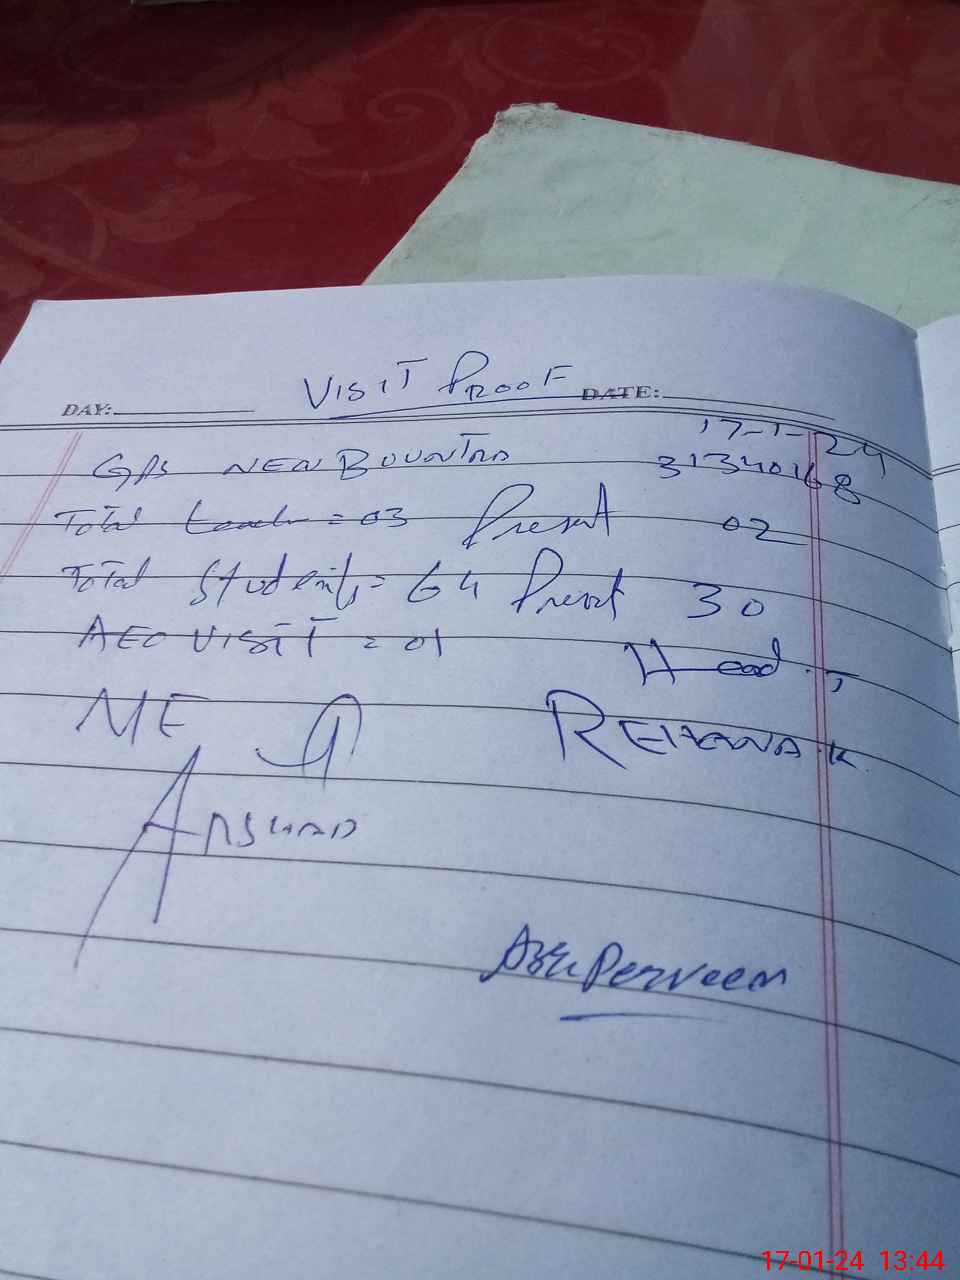 VISIT PROOF
DAY: DATE:
17-1-24
GPS NEW BOUNTRA 31340168
Total teach = 03 Present 02
Total Students = 64 Present 30
AEO VISIT = 01
Head.T
ME
REHANA.K
ARSHAD
Perveen
17-01-24 13:44